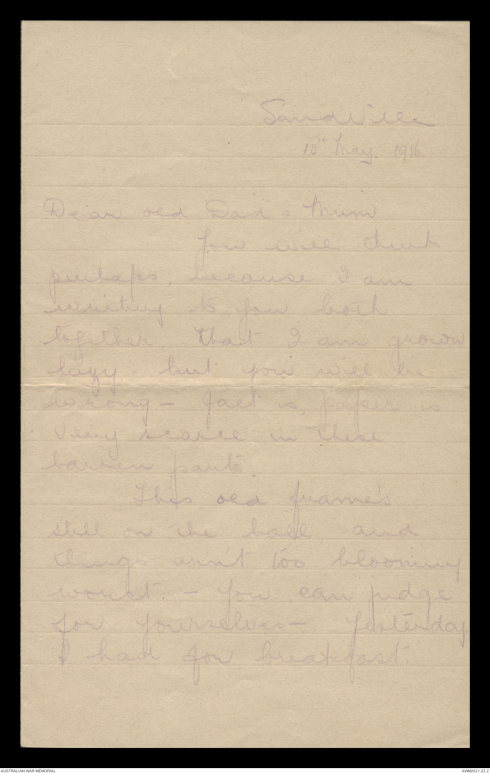 Sandville
10th May 1916
Dear old Dad & Mum
You will think
perhaps, because I am
writing to you both
together, that I am grown
lazy - but you will be
wrong - fact is, paper is
very scarce in these
barren parts.
This old frame's
still on the ball, and
things ain't too blooming
worst. - You can judge
for yourselves - Yesterday
I had for breakfast.
AUSTRALIAN WAR MEMORIAL